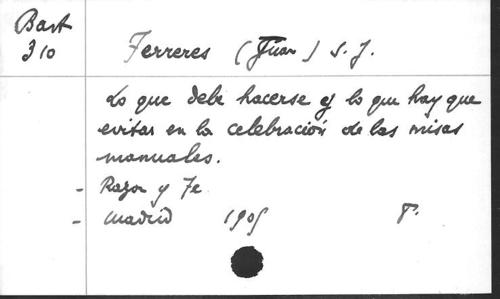 Bast
310
Ferreres (Juan) S. J.
Lo que debe hacerse y lo que hay que
evitar en la celebración de las misas
manuales.
- Razon y Fe
- Madrid 1905 8º.